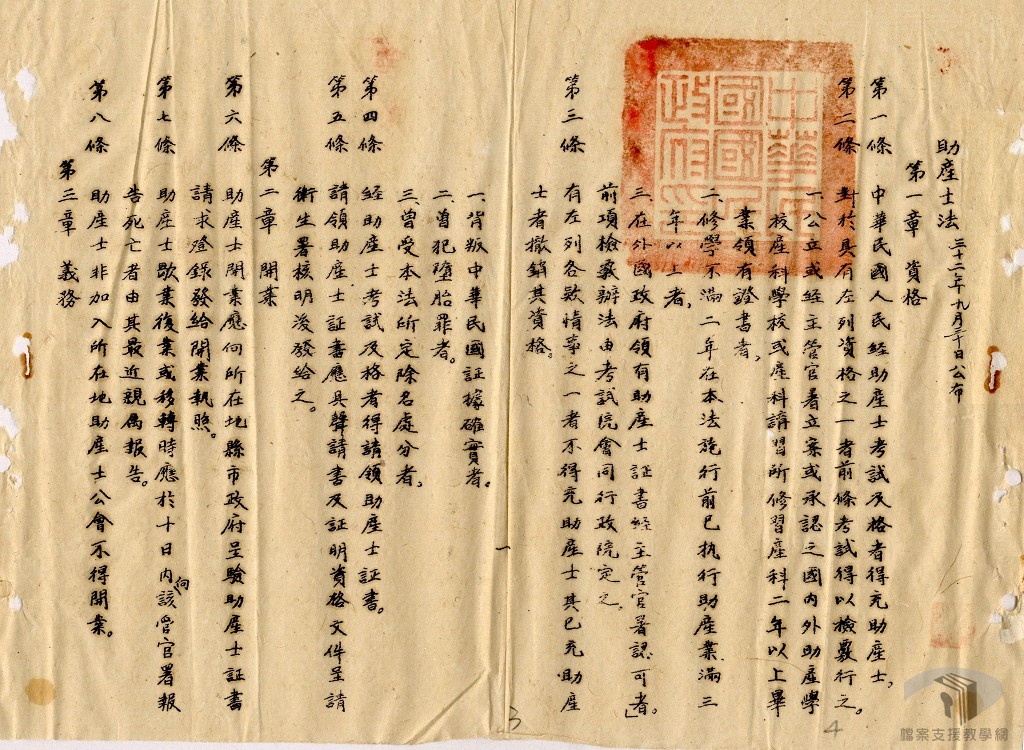 助產士法 三十二年九月三十日公布
第一章 資格
第一條 中華民國人民經助產士考試及格者得充助產士,
第二條 對於具有左列資格之一者前條考試得以檢覈行之。
一、公立或經主管官署立案或承認之國內外助產學
校產科學校或產科講習所修習產科二年以上畢
業領有證書者,
二、修學不滿二年在本法施行前已執行助產業滿三
年以上者,
三、在外國政府領有助產士証書經主管官署認可者。」
前項檢覈辦法由考試院會同行政院定之,
第三條 有左列各款情事之一者不得充助產士其已充助產
士者撤銷其資格。
一
一、背叛中華民國証據確實者。
二、曾犯墮胎罪者。
三、曾受本法所定除名處分者,
第四條 經助產士考試及格者得請領助產士証書。
第五條 請領助產士証書應具聲請書及証明資格文件呈請
衛生署核明後發給之。
第二章 開業
第六條 助產士開業應向所在地縣市政府呈驗助產士証書
請求登錄發給開業執照。
第七條 助產士歇業復業或移轉時應於十日內向該管官署報
告死亡者由其最近親属報告。
第八條 助產士非加入所在地助產士公會不得開業。
第三章 義務
中華民國國民政府印
3
4
檔案支援教學網